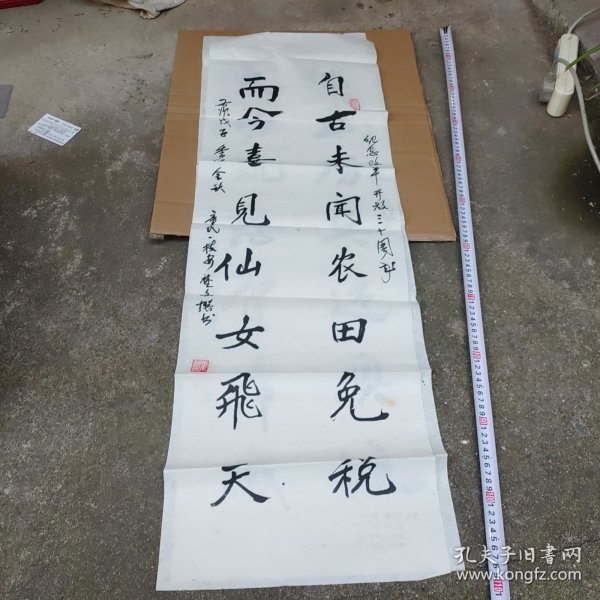 自古未闻农田免税
纪念改革开放三十周年
而今喜见仙女飞天
戊子
金秋
林
书
孔夫子旧书网
www.kongfz.com